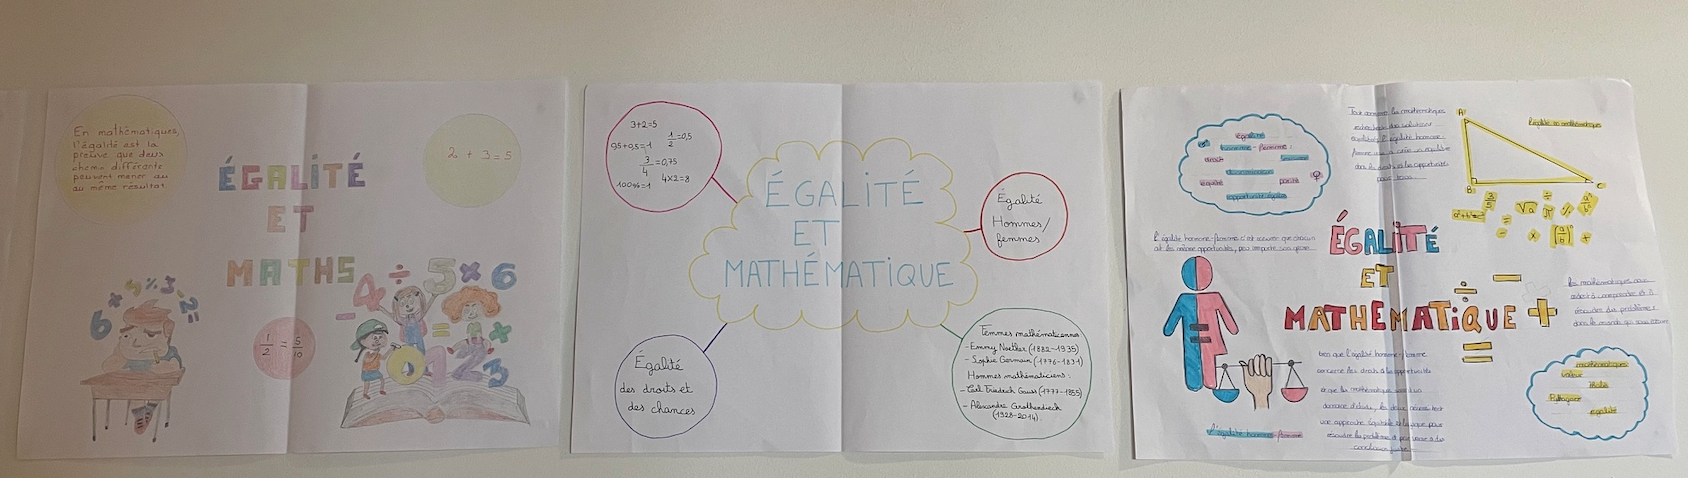 En mathématiques,
l'égalité est la
preuve que deux
chemin différents
peuvent mener au
au même résultat
2 + 3 = 5
ÉGALITÉ
ET
MATHS
6 × 9 ÷ 3 - 2 =
4 ÷ 5 × 6
- = +
0 1 2 3
1/2 = 5/10
3+2=5
1/2 = 0,5
0,5+0,5=1
3/4 = 0,75
4×2=8
100%=1
ÉGALITÉ
ET
MATHÉMATIQUE
Égalité
Hommes/
femmes
Égalité
des droits et
des chances
Femmes mathématiciennes
- Emmy Noether (1882-1935)
- Sophie Germain (1776-1831)
Hommes mathématiciens :
- Carl Friedrich Gauss (1777-1855)
- Alexandre Grothendieck
(1928-2014).
égalité
homme - femme
droit
respect
parité
opportunités égales
Tout comme les mathématiques
recherchent des solutions
équilibrées, l'égalité homme-
femme vise à créer un équilibre
dans les droits et les opportunités
pour tous.
A
B
C
Égalité en mathématiques
L'égalité homme-femme c'est assurer que chacun
ait les mêmes opportunités, peu importe son genre.
ÉGALITÉ
ET
MATHEMATIQUE
÷ - + =
Les mathématiques nous
aident à comprendre et à
résoudre des problèmes
dans le monde qui nous entoure
bien que l'égalité homme-femme
concerne les droits et les opportunités
et que les mathématiques
domaine d'étude, les deux nécessitent
une approche équitable et logique pour
résoudre les problèmes et parvenir à des
conclusions justes.
L'égalité homme-femme
mathématiques
valeur
Pythagore
égalité